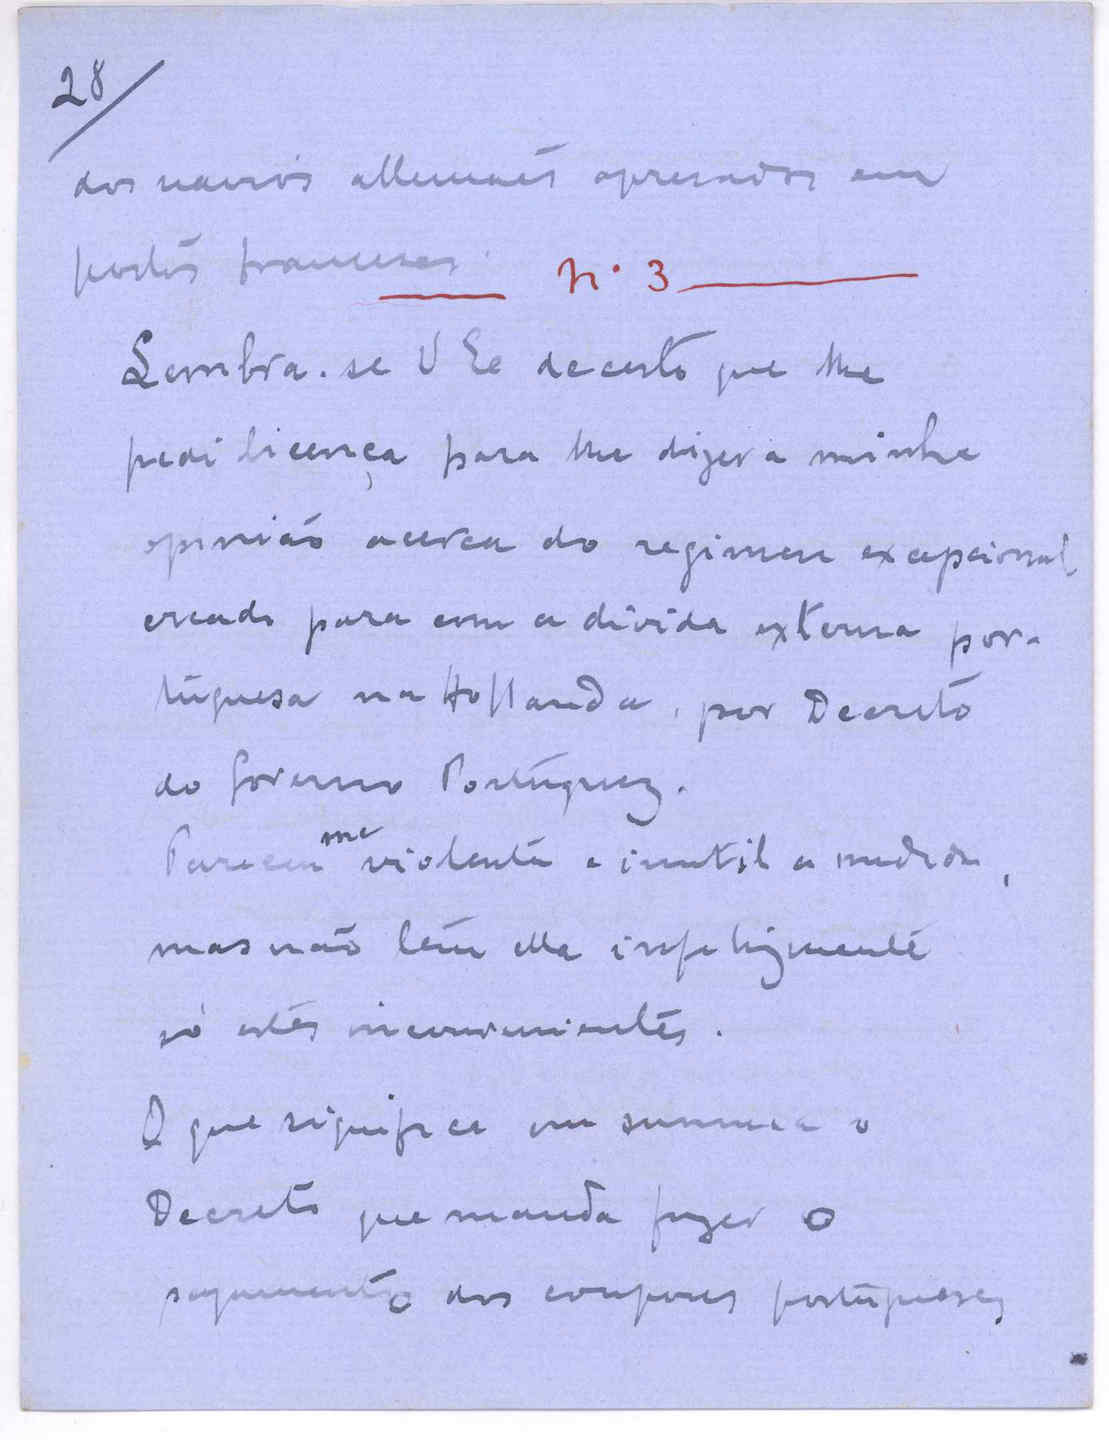 28
dos navios allemães apresados em
portos franceses.
Nº 3
Lembra-se V Ex decerto que lhe
pedi licença para lhe dizer a minha
opinião acerca do regimen excepcional
creado para com a divida externa por-
tuguesa na Hollanda, por Decreto
do Governo Portuguez.
Pareceu me violenta e inutil a medida,
mas não tem ella infelizmente
só estes inconvenientes.
O que significa em summa o
Decreto que manda fazer o
pagamento dos coupones portugueses